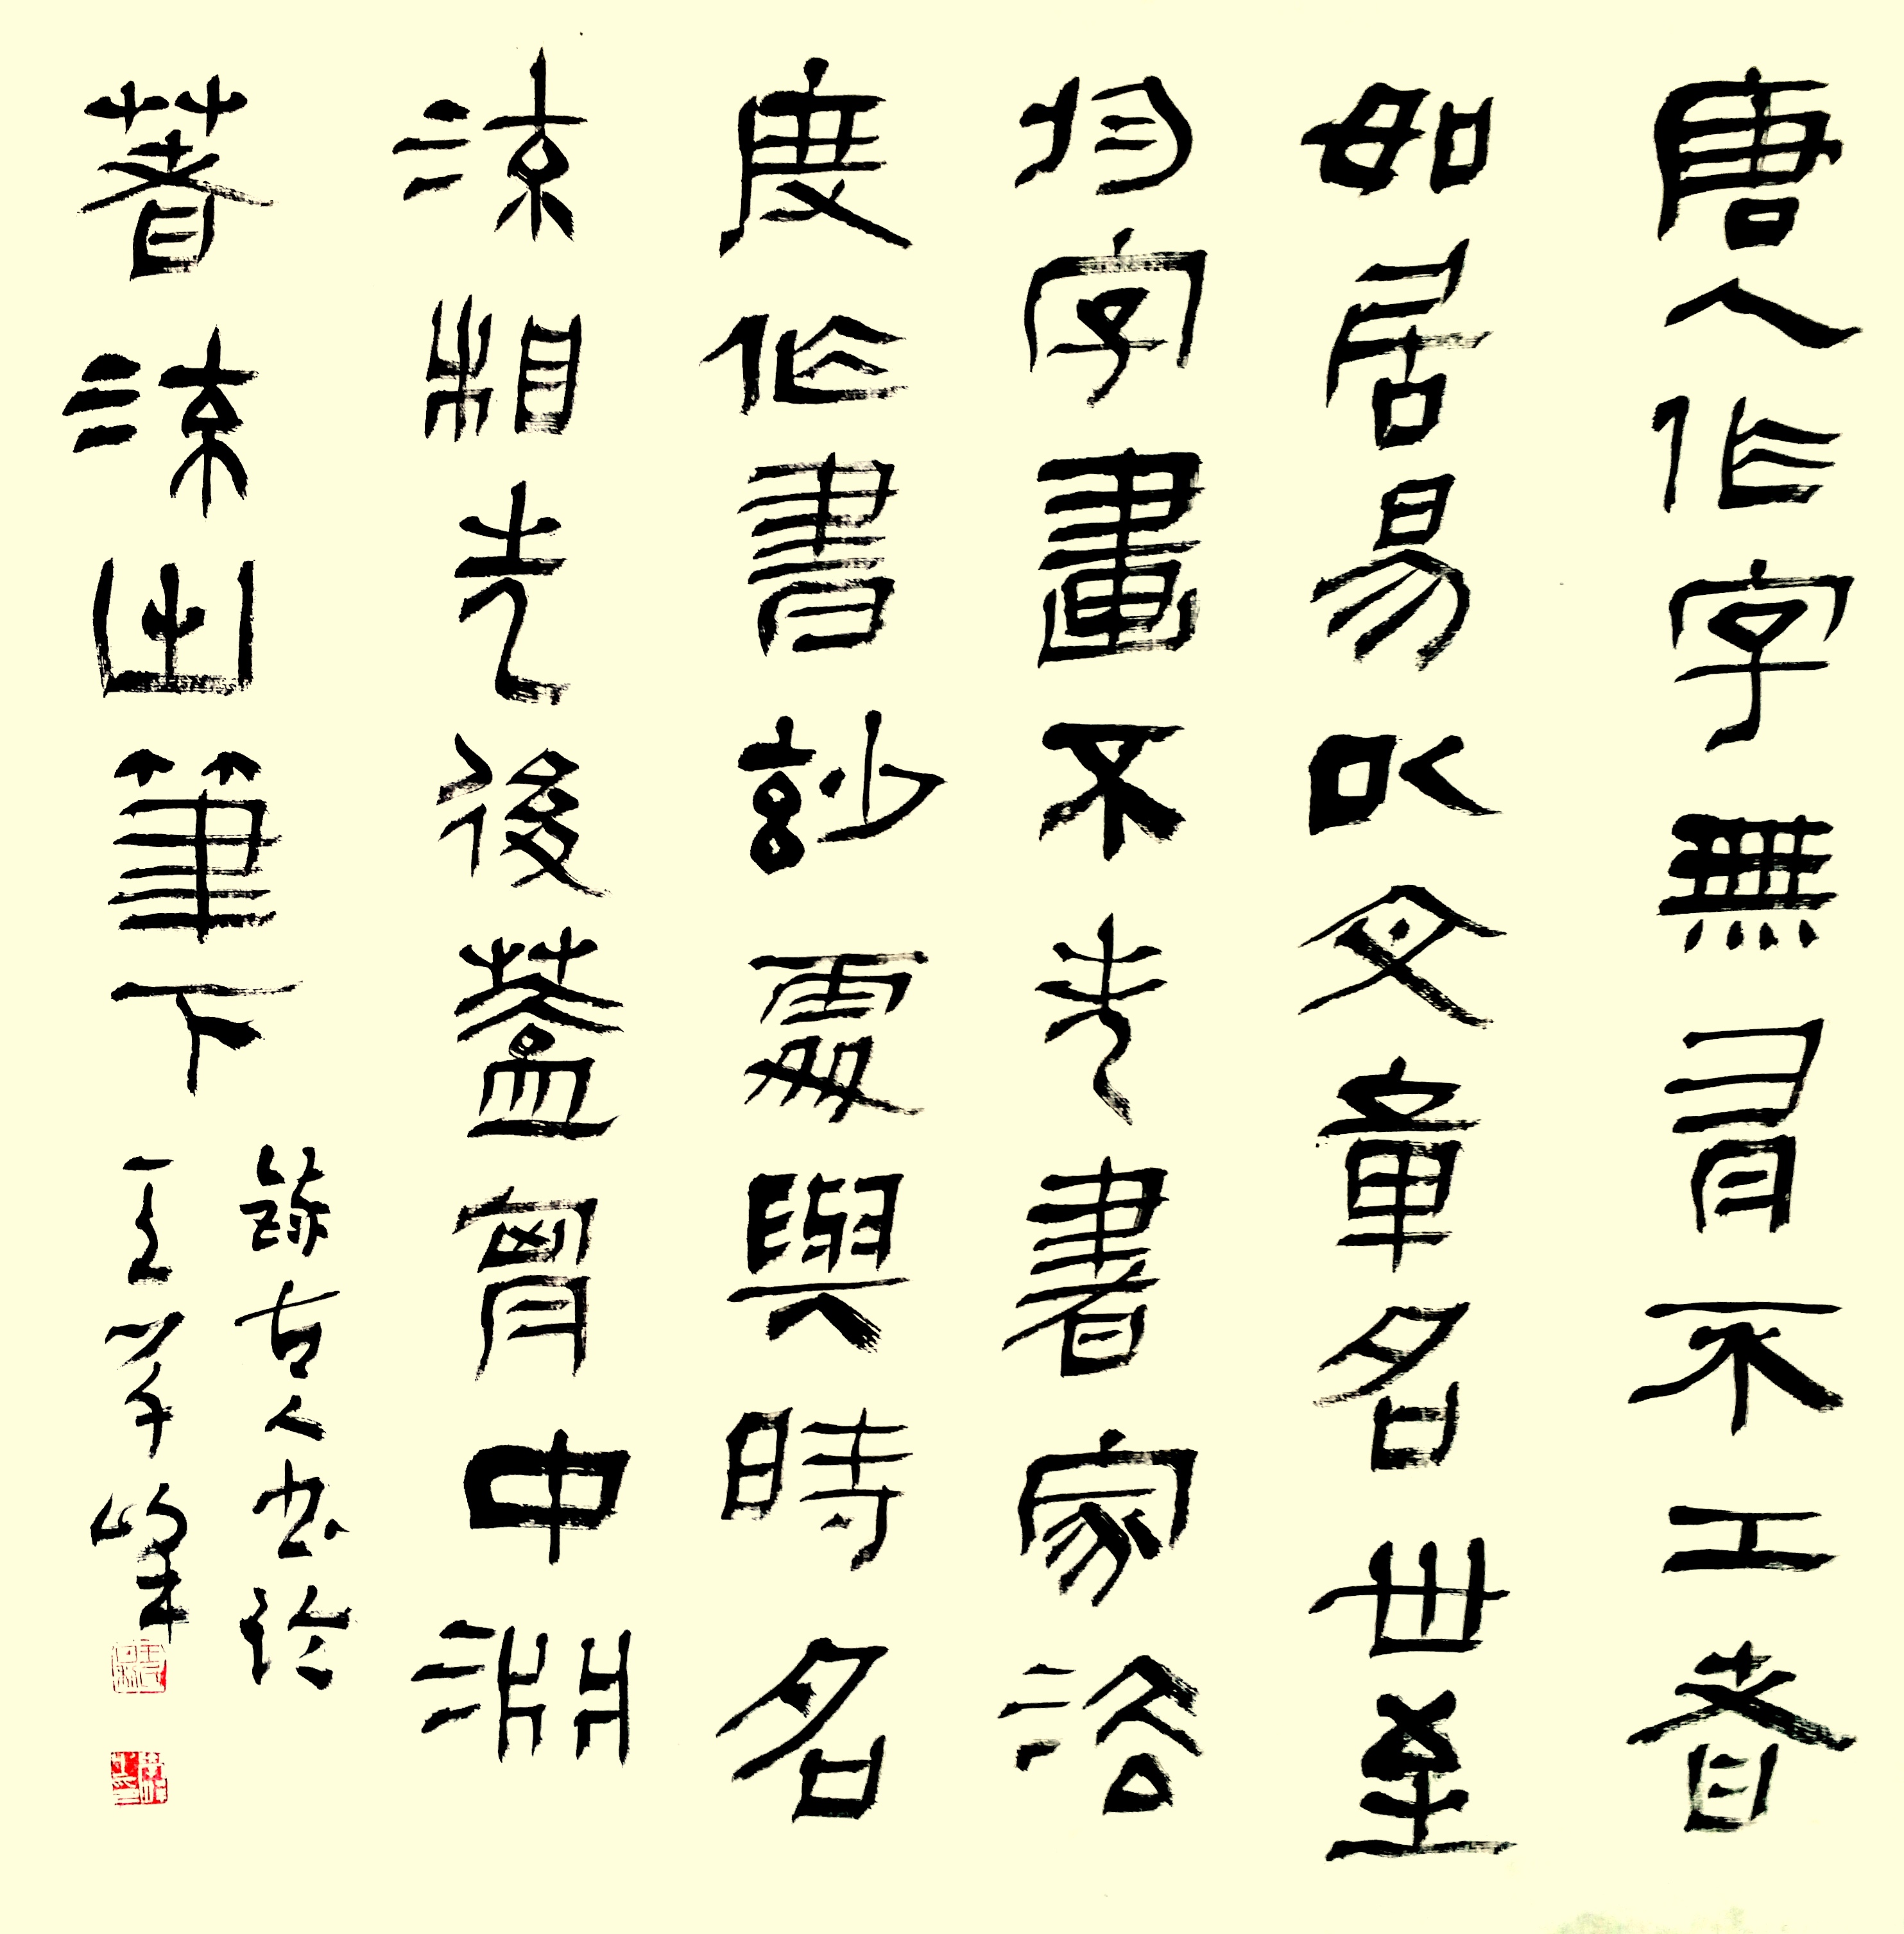 唐人作字無有不工者
如居易以文章名世至
於字畫不失書家法
度作書玅處與時名
流相先後蓋胸中淵
著流出筆下
錄古人书论
王学峰